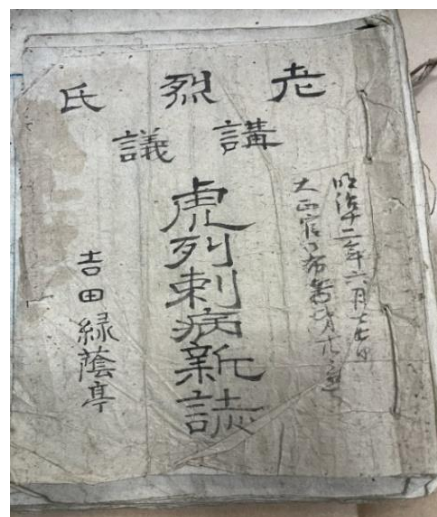 老烈氏
講議
明治十二年六月廿七日
太政官
虎列刺病新誌
吉田緑蔭亭